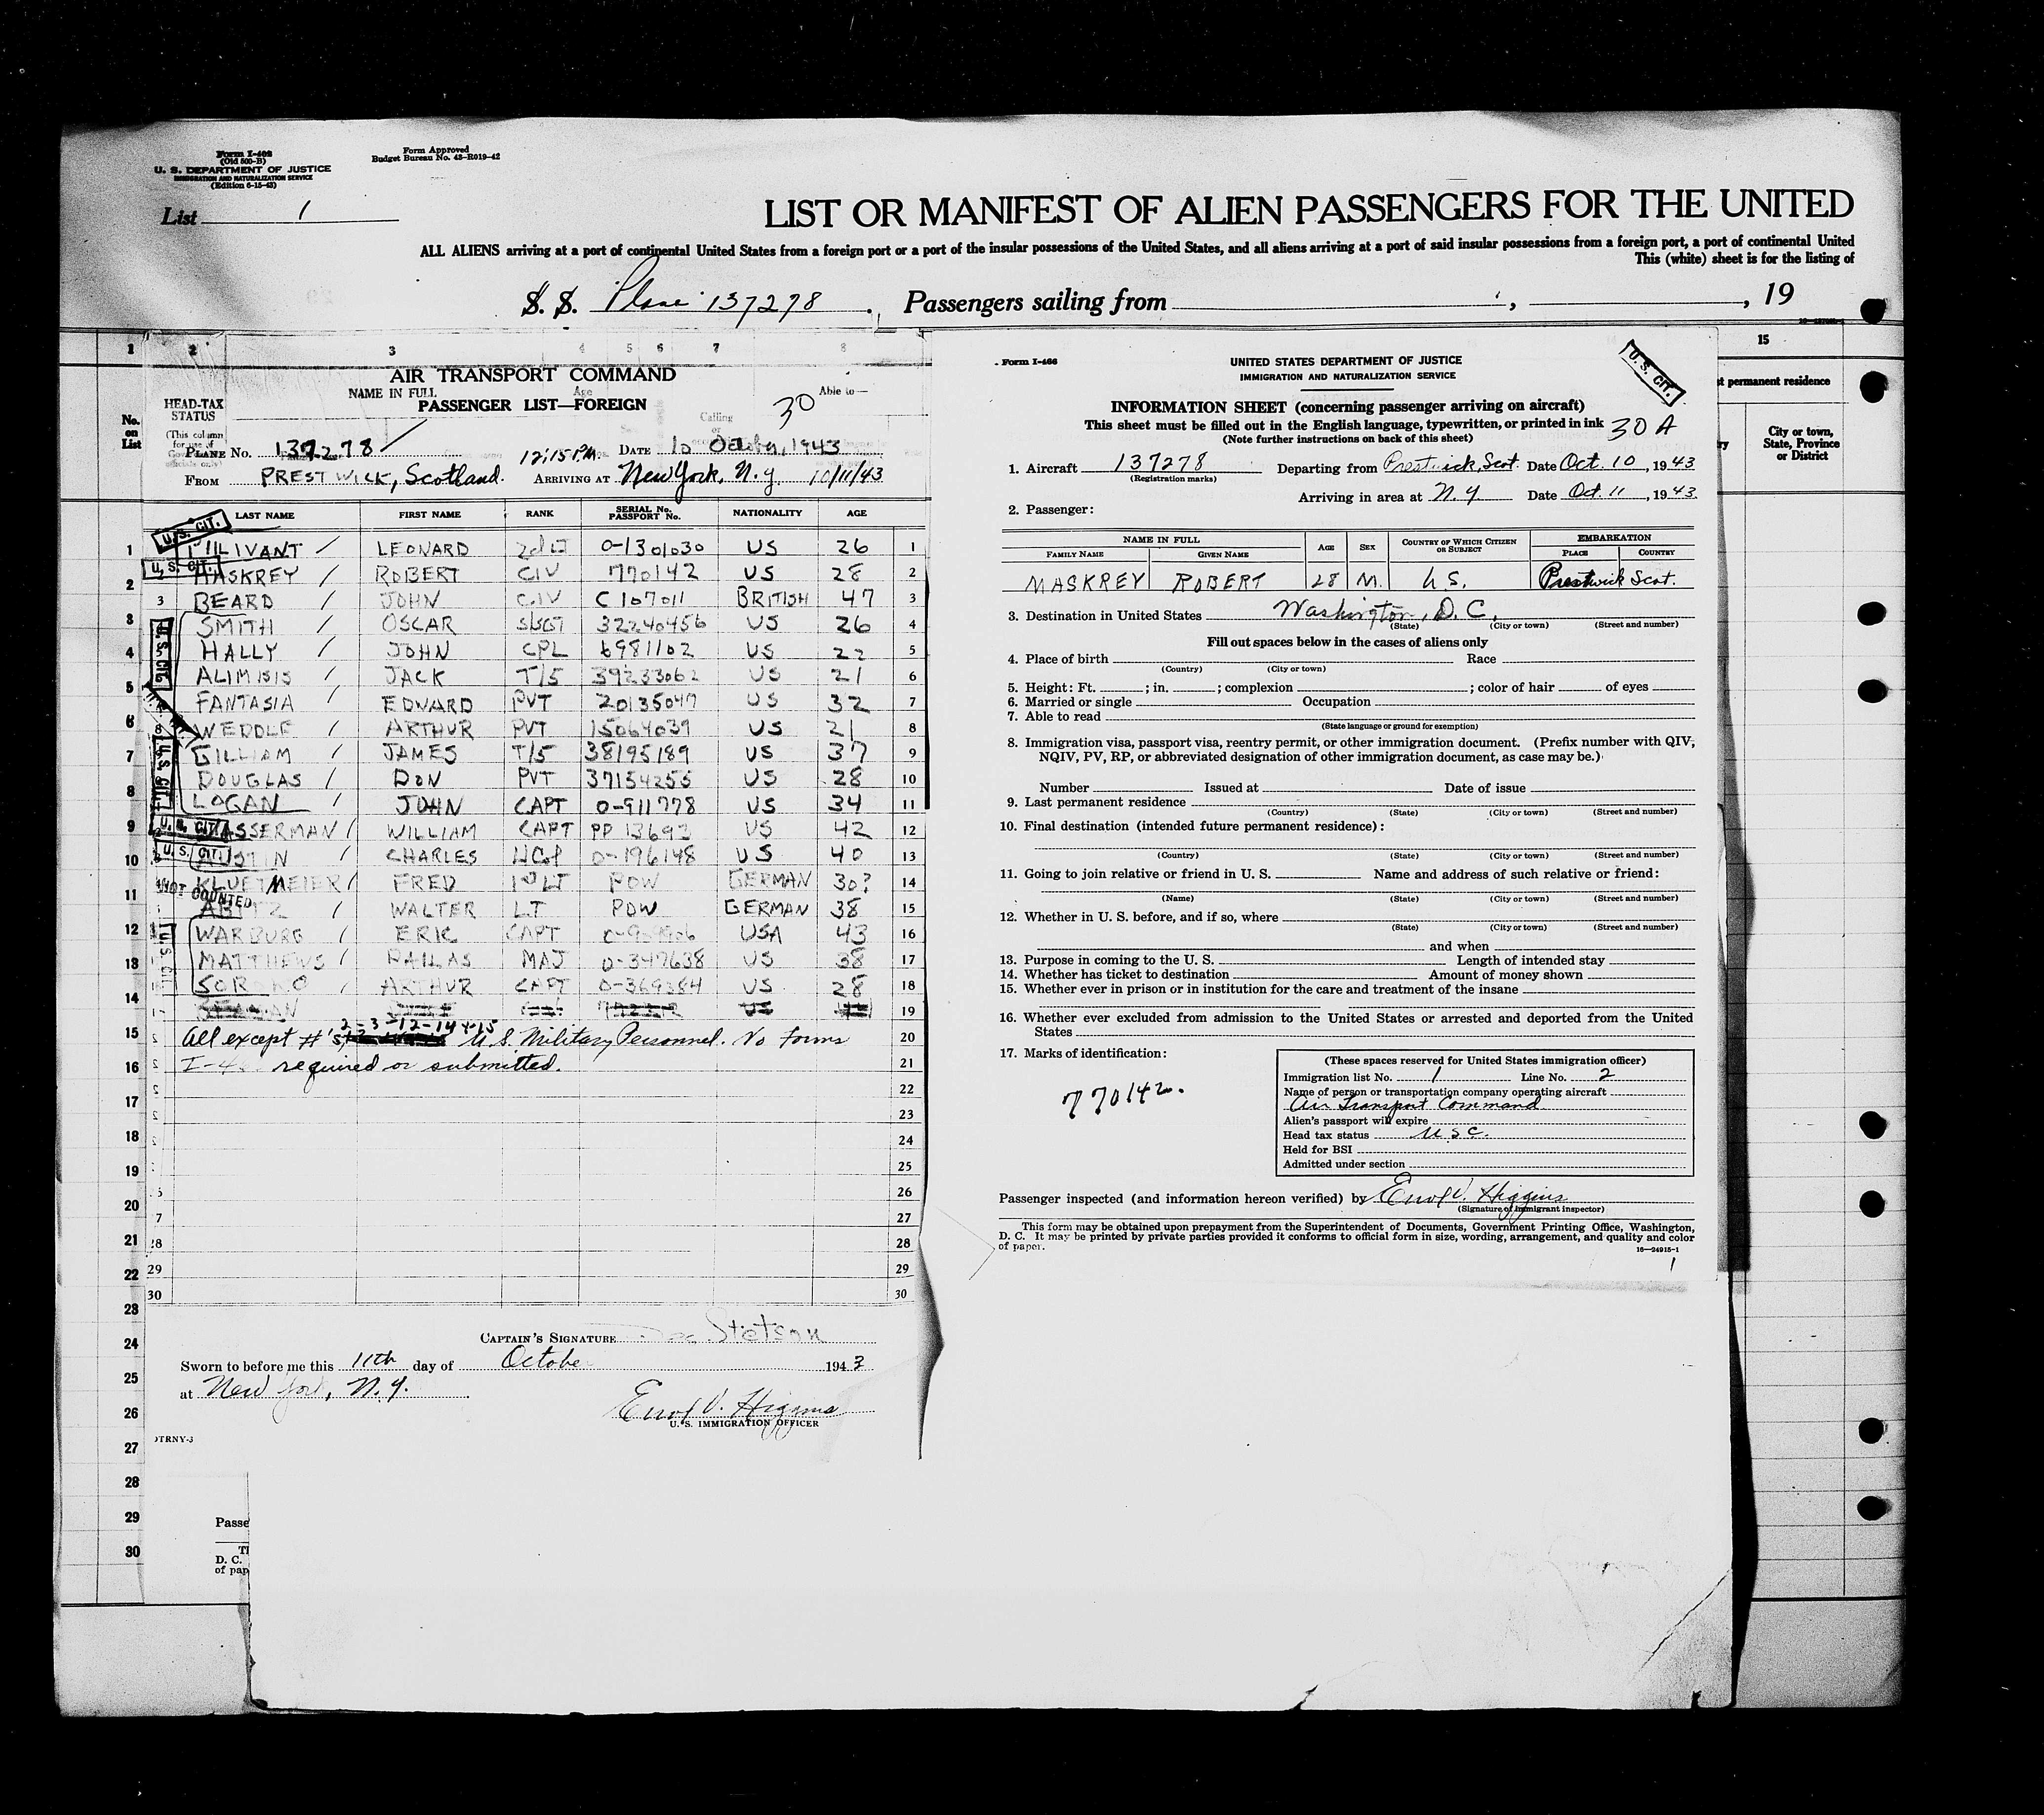 Form I-408
(Old 500-B)
U. S. DEPARTMENT OF JUSTICE
IMMIGRATION AND NATURALIZATION SERVICE
(Edition 6-15-43)
Form Approved
Budget Bureau No. 43-R019-42
List 1
LIST OR MANIFEST OF ALIEN PASSENGERS FOR THE UNITED
ALL ALIENS arriving at a port of continental United States from a foreign port or a port of the insular possessions of the United States, and all aliens arriving at a port of said insular possessions from a foreign port, a port of continental United
This (white) sheet is for the listing of
S. S. Plane 137278, Passengers sailing from , , 19
1 2 3 4 5 6 7 8 15
AIR TRANSPORT COMMAND
NAME IN FULL Age Able to—
PASSENGER LIST—FOREIGN 30
HEAD-TAX STATUS
(This column for use of
officials only)
No. on List
Calling
PLANE NO. 137278 12:15 PM. DATE 10 October, 1943
FROM PRESTWICK, Scotland. ARRIVING AT New York, N.Y. 10/11/43
LAST NAME FIRST NAME RANK SERIAL NO. PASSPORT NO. NATIONALITY AGE
LEONARD 2d LT 0-1301030 US 26 1
MASKREY ROBERT CIV 770142 US 28 2
3 BEARD JOHN CIV C 107011 BRITISH 47 3
SMITH OSCAR S/SGT 32240456 US 26 4
HALLY JOHN CPL 6981102 US 22 5
JACK T/5 39233062 US 21 6
FANTASIA EDWARD PVT 20135047 US 32 7
WEDDLE ARTHUR PVT 15064039 US 21 8
GILLIAM JAMES T/5 38195189 US 37 9
DOUGLAS DON PVT 37154255 US 28 10
LOGAN JOHN CAPT 0-911778 US 34 11
WASSERMAN WILLIAM CAPT PP 13692 US 42 12
AUSTIN CHARLES Lt Col 0-196148 US 40 13
KLUETMEIER FRED 1st LT POW GERMAN 30? 14
WALTER LT POW GERMAN 38 15
WARBURG ERIC CAPT USA 43 16
MATTHEWS DALLAS MAJ 0-347638 US 38 17
ARTHUR CAPT 0-369384 US 28 18
19
2-3-12-14+15
All except #'s U.S. Military Personnel. No forms 20
required or submitted. 21
22
23
24
25
26
27
28
29 29
30 30
U. S. CIT.
U. S. CIT.
U. S. CIT.
U. S. CIT.
U. S. CIT.
U. S. CIT.
NOT COUNTED
U. S. CIT.
1
2
3
4
5
6
7
8
9
10
11
12
13
14
15
16
17
18
19
20
21
22
23
24
25
26
27
28
29
30
CAPTAIN'S SIGNATURE Stetson
Sworn to before me this 11th day of October 1943
at New York, N.Y.
Errol V. Higgins
U. S. IMMIGRATION OFFICER
OTRNY-3
Passe
D. C.
of pap
Form I-466
UNITED STATES DEPARTMENT OF JUSTICE
IMMIGRATION AND NATURALIZATION SERVICE
U. S. CIT.
INFORMATION SHEET (concerning passenger arriving on aircraft)
This sheet must be filled out in the English language, typewritten, or printed in ink 30 A
(Note further instructions on back of this sheet)
1. Aircraft 137278 Departing from Prestwick, Scot. Date Oct. 10, 1943
(Registration marks)
Arriving in area at N.Y. Date Oct 11, 1943
2. Passenger:
NAME IN FULL AGE SEX COUNTRY OF WHICH CITIZEN OR SUBJECT EMBARKATION
FAMILY NAME GIVEN NAME PLACE COUNTRY
MASKREY ROBERT 28 M. U.S. Prestwick Scot.
3. Destination in United States Washington, D.C.
(State) (City or town) (Street and number)
Fill out spaces below in the cases of aliens only
4. Place of birth Race
(Country) (City or town)
5. Height: Ft. ; in. ; complexion ; color of hair of eyes
6. Married or single Occupation
7. Able to read
(State language or ground for exemption)
8. Immigration visa, passport visa, reentry permit, or other immigration document. (Prefix number with QIV,
NQIV, PV, RP, or abbreviated designation of other immigration document, as case may be.)
Number Issued at Date of issue
9. Last permanent residence
(Country) (State) (City or town) (Street and number)
10. Final destination (intended future permanent residence):
(Country) (State) (City or town) (Street and number)
11. Going to join relative or friend in U. S. Name and address of such relative or friend:
(Name) (State) (City or town) (Street and number)
12. Whether in U. S. before, and if so, where
(State) (City or town) (Street and number)
and when
13. Purpose in coming to the U. S. Length of intended stay
14. Whether has ticket to destination Amount of money shown
15. Whether ever in prison or in institution for the care and treatment of the insane
16. Whether ever excluded from admission to the United States or arrested and deported from the United
States
17. Marks of identification:
770142.
(These spaces reserved for United States immigration officer)
Immigration list No. 1 Line No. 2
Name of person or transportation company operating aircraft
Air Transport Command
Alien's passport will expire
Head tax status USC.
Held for BSI
Admitted under section
Passenger inspected (and information hereon verified) by Errol V. Higgins
(Signature of immigrant inspector)
This form may be obtained upon prepayment from the Superintendent of Documents, Government Printing Office, Washington,
D. C. It may be printed by private parties provided it conforms to official form in size, wording, arrangement, and quality and color
of paper.
16—24915-1
1
t permanent residence
City or town, State, Province or District